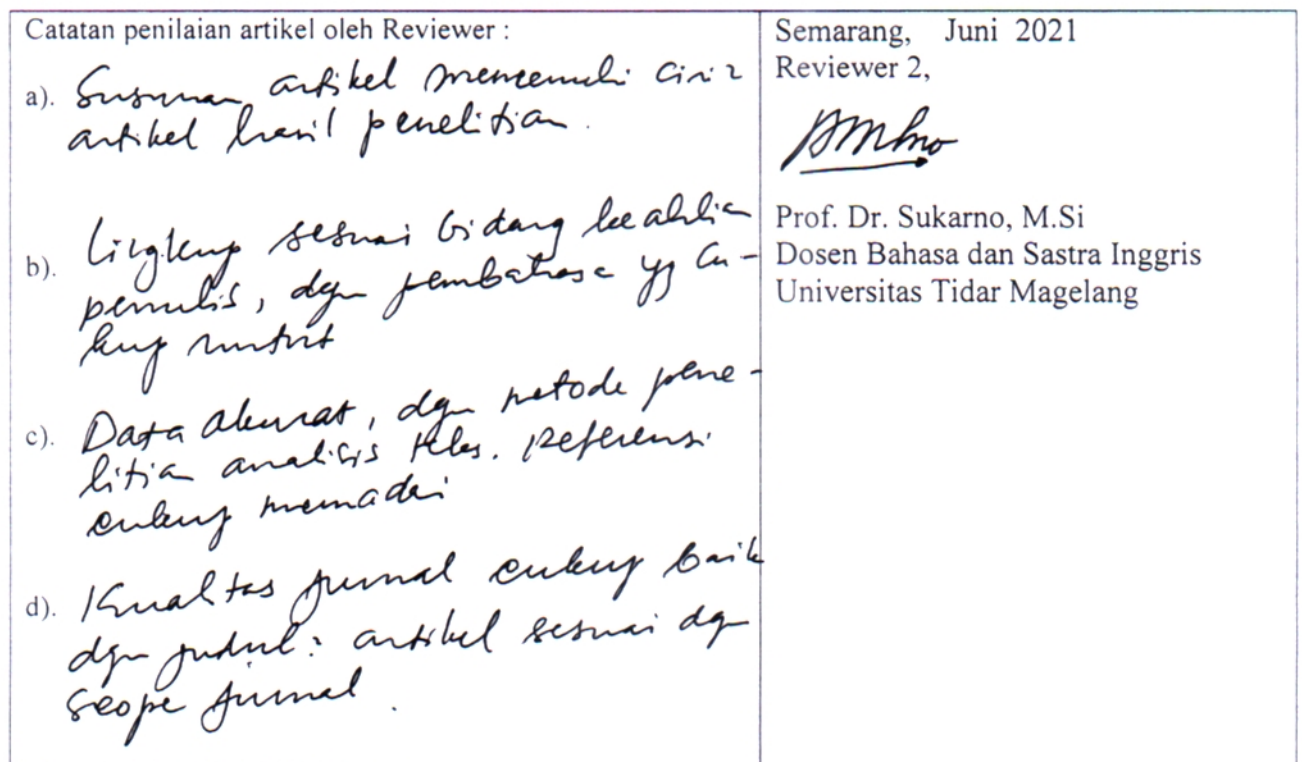 Catatan penilaian artikel oleh Reviewer :
a). Susunan artikel memenuhi ciri2
artikel hasil penelitian.
b). Lingkup sesuai bidang keahlian
penulis, dgn pembahasa yg cu-
kup runtut
c). Data akurat, dgn metode pene-
litian analisis teks. Referensi
cukup memadai
d). Kualitas jurnal cukup baik
dgn judul2 artikel sesuai dgn
scope jurnal.
Semarang, Juni 2021
Reviewer 2,
Prof. Dr. Sukarno, M.Si
Dosen Bahasa dan Sastra Inggris
Universitas Tidar Magelang